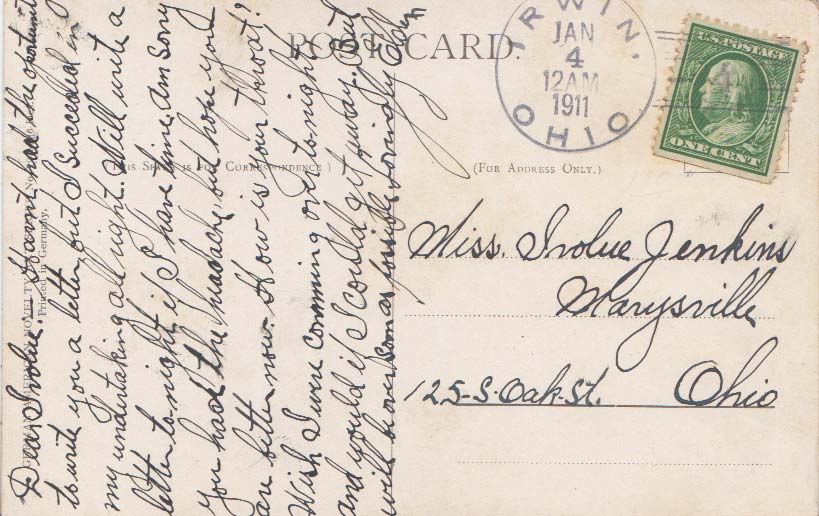 POST CARD.
IRWIN,
JAN
4
12AM
1911
OHIO
U.S. POSTAGE
ONE CENT
(This Space is for Correspondence)
(For Address Only.)
Miss. Ivolue Jenkins
Marysville
125-S-Oak-St. Ohio
Printed in Germany.
Dear Ivolue:- Havent had the oportunity
to write you a letter, but I succeeded in
my undertaking all right. Will write a
letter to-night if I have time. Am sorry
you had the headache, but hope you
are better now. How is your throat?
Wish I were comming over to-night
and would if I could get away. But
will be over soon as possible.